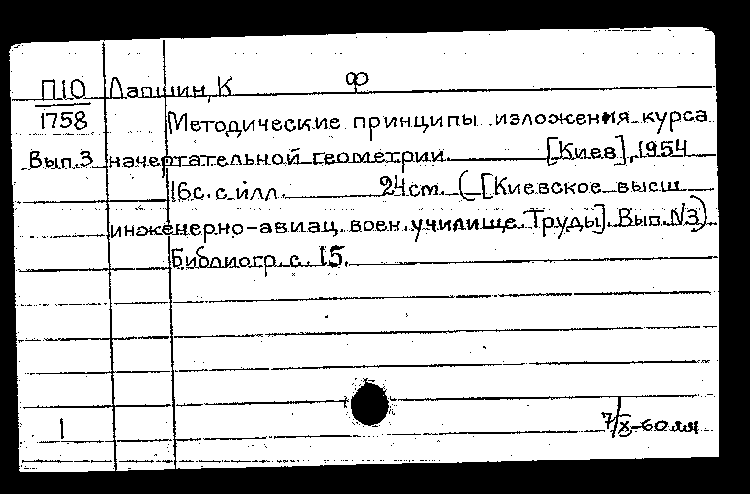 П10 Лапшин, К ф
1758 Методические принципы изложения курса
Вып.3 начертательной геометрии. [Киев], 1954
16с. с илл. 24см. (—[Киевское высш
инженерно-авиац. воен. училище. Труды]. Вып. N3)
Библиогр. с. 15.
1 7/X-60